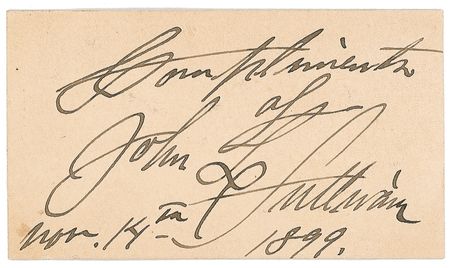 Compliments
of
John L Sullivan
Nov. 14th 1899.